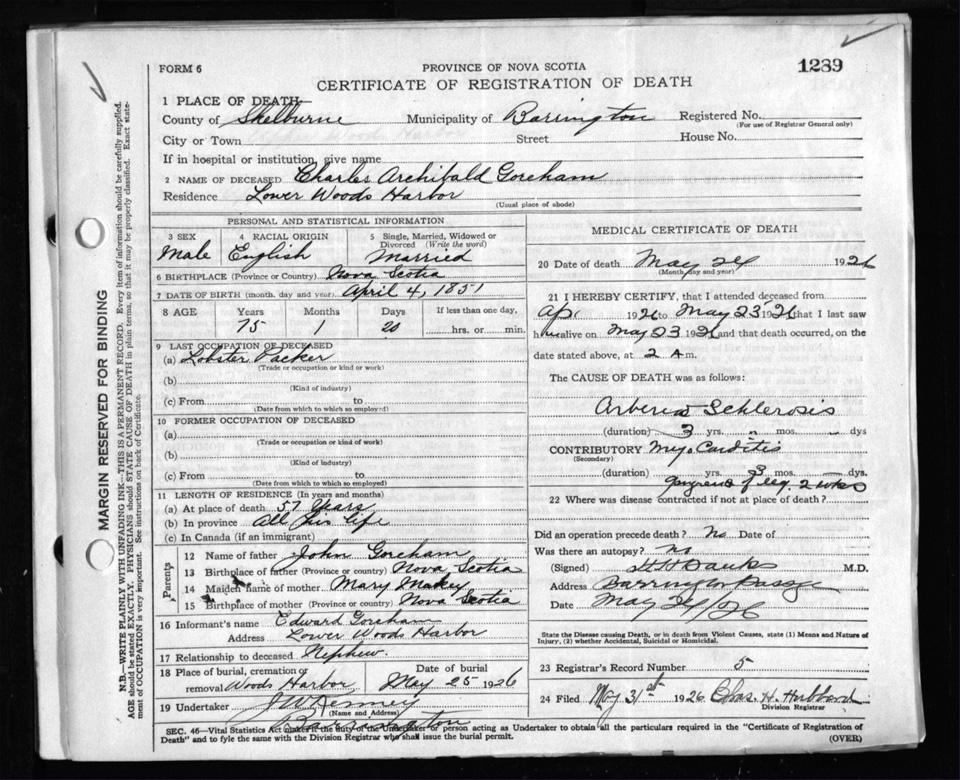 FORM 6
PROVINCE OF NOVA SCOTIA
1289
CERTIFICATE OF REGISTRATION OF DEATH
1 PLACE OF DEATH
County of Shelburne Municipality of Barrington Registered No.
(For use of Registrar General only)
City or Town Street House No.
If in hospital or institution, give name
2 NAME OF DECEASED Charles Archibald Goreham
Residence Lower Woods Harbor
(Usual place of abode)
PERSONAL AND STATISTICAL INFORMATION
3 SEX
Male
4 RACIAL ORIGIN
English
5 Single, Married, Widowed or
Divorced (Write the word)
Married
6 BIRTHPLACE (Province or Country) Nova Scotia
7 DATE OF BIRTH (month, day and year) April 4, 1851
8 AGE Years Months Days If less than one day,
75 1 20 hrs. or min.
9 LAST OCCUPATION OF DECEASED
(a) Lobster Packer
(Trade or occupation or kind or work)
(b)
(Kind of industry)
(c) From to
(Date from which to which so employed)
10 FORMER OCCUPATION OF DECEASED
(a)
(Trade or occupation or kind of work)
(b)
(Kind of industry)
(c) From to
(Date from which to which so employed)
11 LENGTH OF RESIDENCE (In years and months)
(a) At place of death 57 Years
(b) In province All his life
(c) In Canada (if an immigrant)
Parents
12 Name of father John Goreham
13 Birthplace of father (Province or country) Nova Scotia
14 Maiden name of mother Mary Mackey
15 Birthplace of mother (Province or country) Nova Scotia
16 Informant's name Edward Goreham
Address Lower Woods Harbor
17 Relationship to deceased Nephew.
18 Place of burial, cremation or
removal Woods Harbor
Date of burial
May 25 1926
19 Undertaker
(Name and Address)
Barrington
MEDICAL CERTIFICATE OF DEATH
20 Date of death May 24 1926
(Month day and year)
21 I HEREBY CERTIFY, that I attended deceased from
Apr 1926 to May 23 1926 that I last saw
him alive on May 23 1926 and that death occurred, on the
date stated above, at 2 A m.
The CAUSE OF DEATH was as follows:
Arberio Schlerosis
(duration) 3 yrs. mos. dys
CONTRIBUTORY Myo Carditis
(Secondary)
(duration) yrs. 3 mos. dys.
Gangrene of leg. 2 wks
22 Where was disease contracted if not at place of death?
Did an operation precede death? No Date of
Was there an autopsy? no
(Signed) Banks M.D.
Address Barrington Passage
Date May 24/26
State the Disease causing Death, or in death from Violent Causes, state (1) Means and Nature of
Injury, (2) whether Accidental, Suicidal or Homicidal.
23 Registrar's Record Number 5
24 Filed May 31st 1926 Chas. H. Hubbard
Division Registrar
SEC. 46—Vital Statistics Act makes it the duty of the Undertaker or person acting as Undertaker to obtain all the particulars required in the "Certificate of Registration of
Death" and to fyle the same with the Division Registrar who shall issue the burial permit.
(OVER)
MARGIN RESERVED FOR BINDING
N.B.—WRITE PLAINLY WITH UNFADING INK—THIS IS A PERMANENT RECORD. Every item of information should be carefully supplied.
AGE should be stated EXACTLY. PHYSICIANS should STATE CAUSE OF DEATH in plain terms, so that it may be properly classified. Exact state-
ment of OCCUPATION is very important. See instructions on back of Certificate.